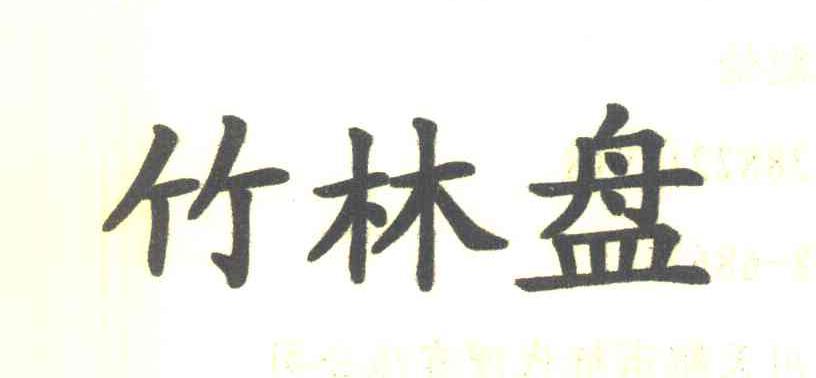 竹林盘